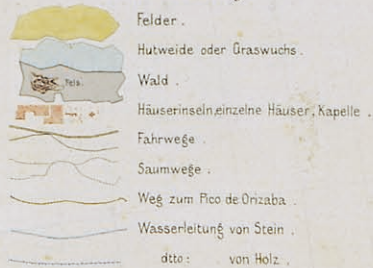 Felder.
Hutweide oder Graswuchs.
Fels.
Wald.
Häuserinseln, einzelne Häuser, Kapelle.
Fahrwege.
Saumwege.
Weg zum Pico de Orizaba.
Wasserleitung von Stein.
dtto: von Holz.